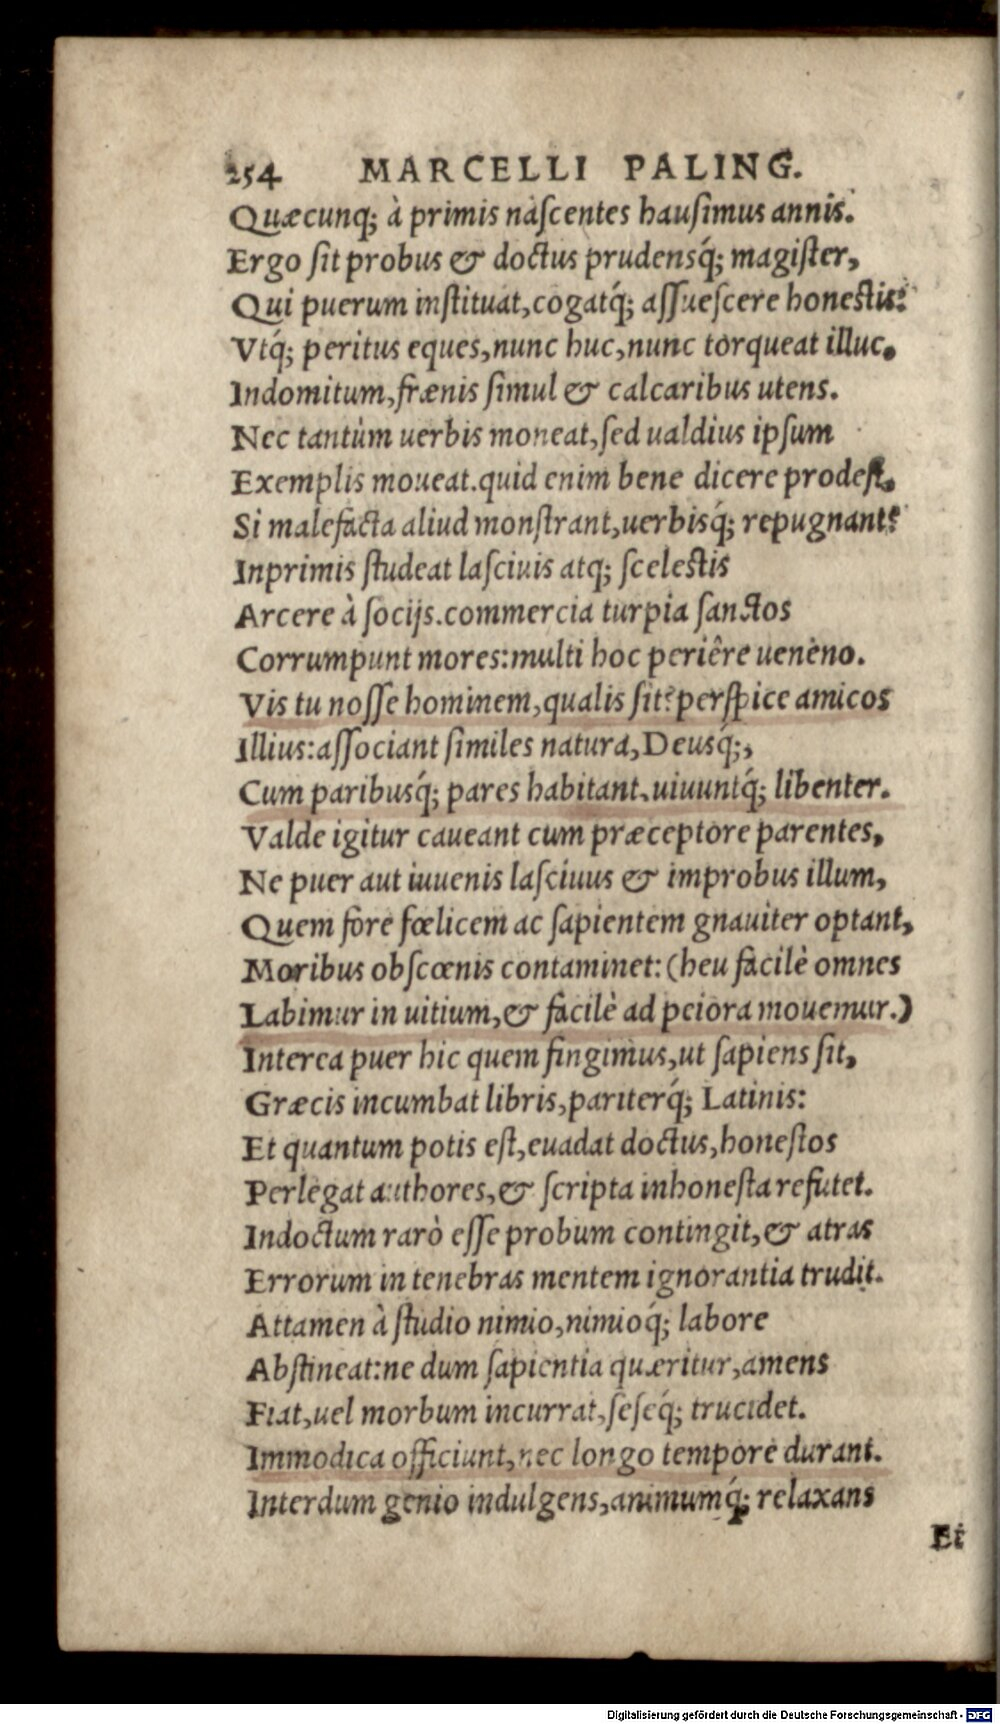 254 MARCELLI PALING.
Quæcunq; à primis nascentes hausimus annis.
Ergo sit probus & doctus prudensq́; magister,
Qui puerum instituat, cogatq́; assuescere honestis:
Vtq́; peritus eques, nunc huc, nunc torqueat illuc.
Indomitum, frænis simul & calcaribus utens.
Nec tantùm uerbis moneat, sed ualdius ipsum
Exemplis moueat. quid enim bene dicere prodest,
Si malefacta aliud monstrant, uerbisq́; repugnant?
Inprimis studeat lasciuis atq; scelestis
Arcere à socijs. commercia turpia sanctos
Corrumpunt mores: multi hoc periêre ueneno.
Vis tu nosse hominem, qualis sit? perspice amicos
Illius: associant similes natura, Deusq́;,
Cum paribusq́; pares habitant, uiuuntq́; libenter.
Valde igitur caueant cum præceptore parentes,
Ne puer aut iuuenis lasciuus & improbus illum,
Quem fore fœlicem ac sapientem gnauiter optant,
Moribus obscœnis contaminet: (heu facilè omnes
Labimur in uitium, & facilè ad peiora mouemur.)
Interea puer hic quem fingimus, ut sapiens sit,
Græcis incumbat libris, pariterq́; Latinis:
Et quantum potis est, euadat doctus, honestos
Perlegat authores, & scripta inhonesta refutet.
Indoctum rarò esse probum contingit, & atras
Errorum in tenebras mentem ignorantia trudit.
Attamen à studio nimio, nimioq́; labore
Abstineat: ne dum sapientia quæritur, amens
Fiat, uel morbum incurrat, seseq́; trucidet.
Immodica officiunt, nec longo tempore durant.
Interdum genio indulgens, animumq́; relaxans
Et
Digitalisierung gefördert durch die Deutsche Forschungsgemeinschaft - DFG